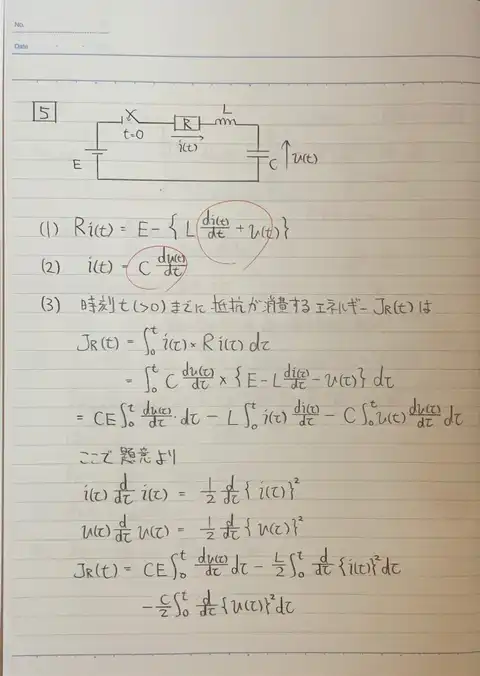 No.
Date
5
t=0
R
L
i(t)
E
C
v(t)
(1) Ri(t) = E - { L di(t)/dt + v(t) }
(2) i(t) = C dv(t)/dt
(3) 時刻t(>0)までに抵抗が消費するエネルギーJR(t)は
JR(t) = ∫₀ᵗ i(τ) × Ri(τ) dτ
= ∫₀ᵗ C dv(τ)/dτ × { E - L di(τ)/dτ - v(τ) } dτ
= CE∫₀ᵗ dv(τ)/dτ · dτ - L∫₀ᵗ i(τ) di(τ)/dτ - C∫₀ᵗ v(τ) dv(τ)/dτ dτ
ここで題意より
i(τ) d/dτ i(τ) = 1/2 d/dτ { i(τ) }²
v(τ) d/dτ v(τ) = 1/2 d/dτ { v(τ) }²
JR(t) = CE∫₀ᵗ dv(τ)/dτ dτ - L/2 ∫₀ᵗ d/dτ { i(τ) }² dτ
- C/2 ∫₀ᵗ d/dτ { v(τ) }² dτ